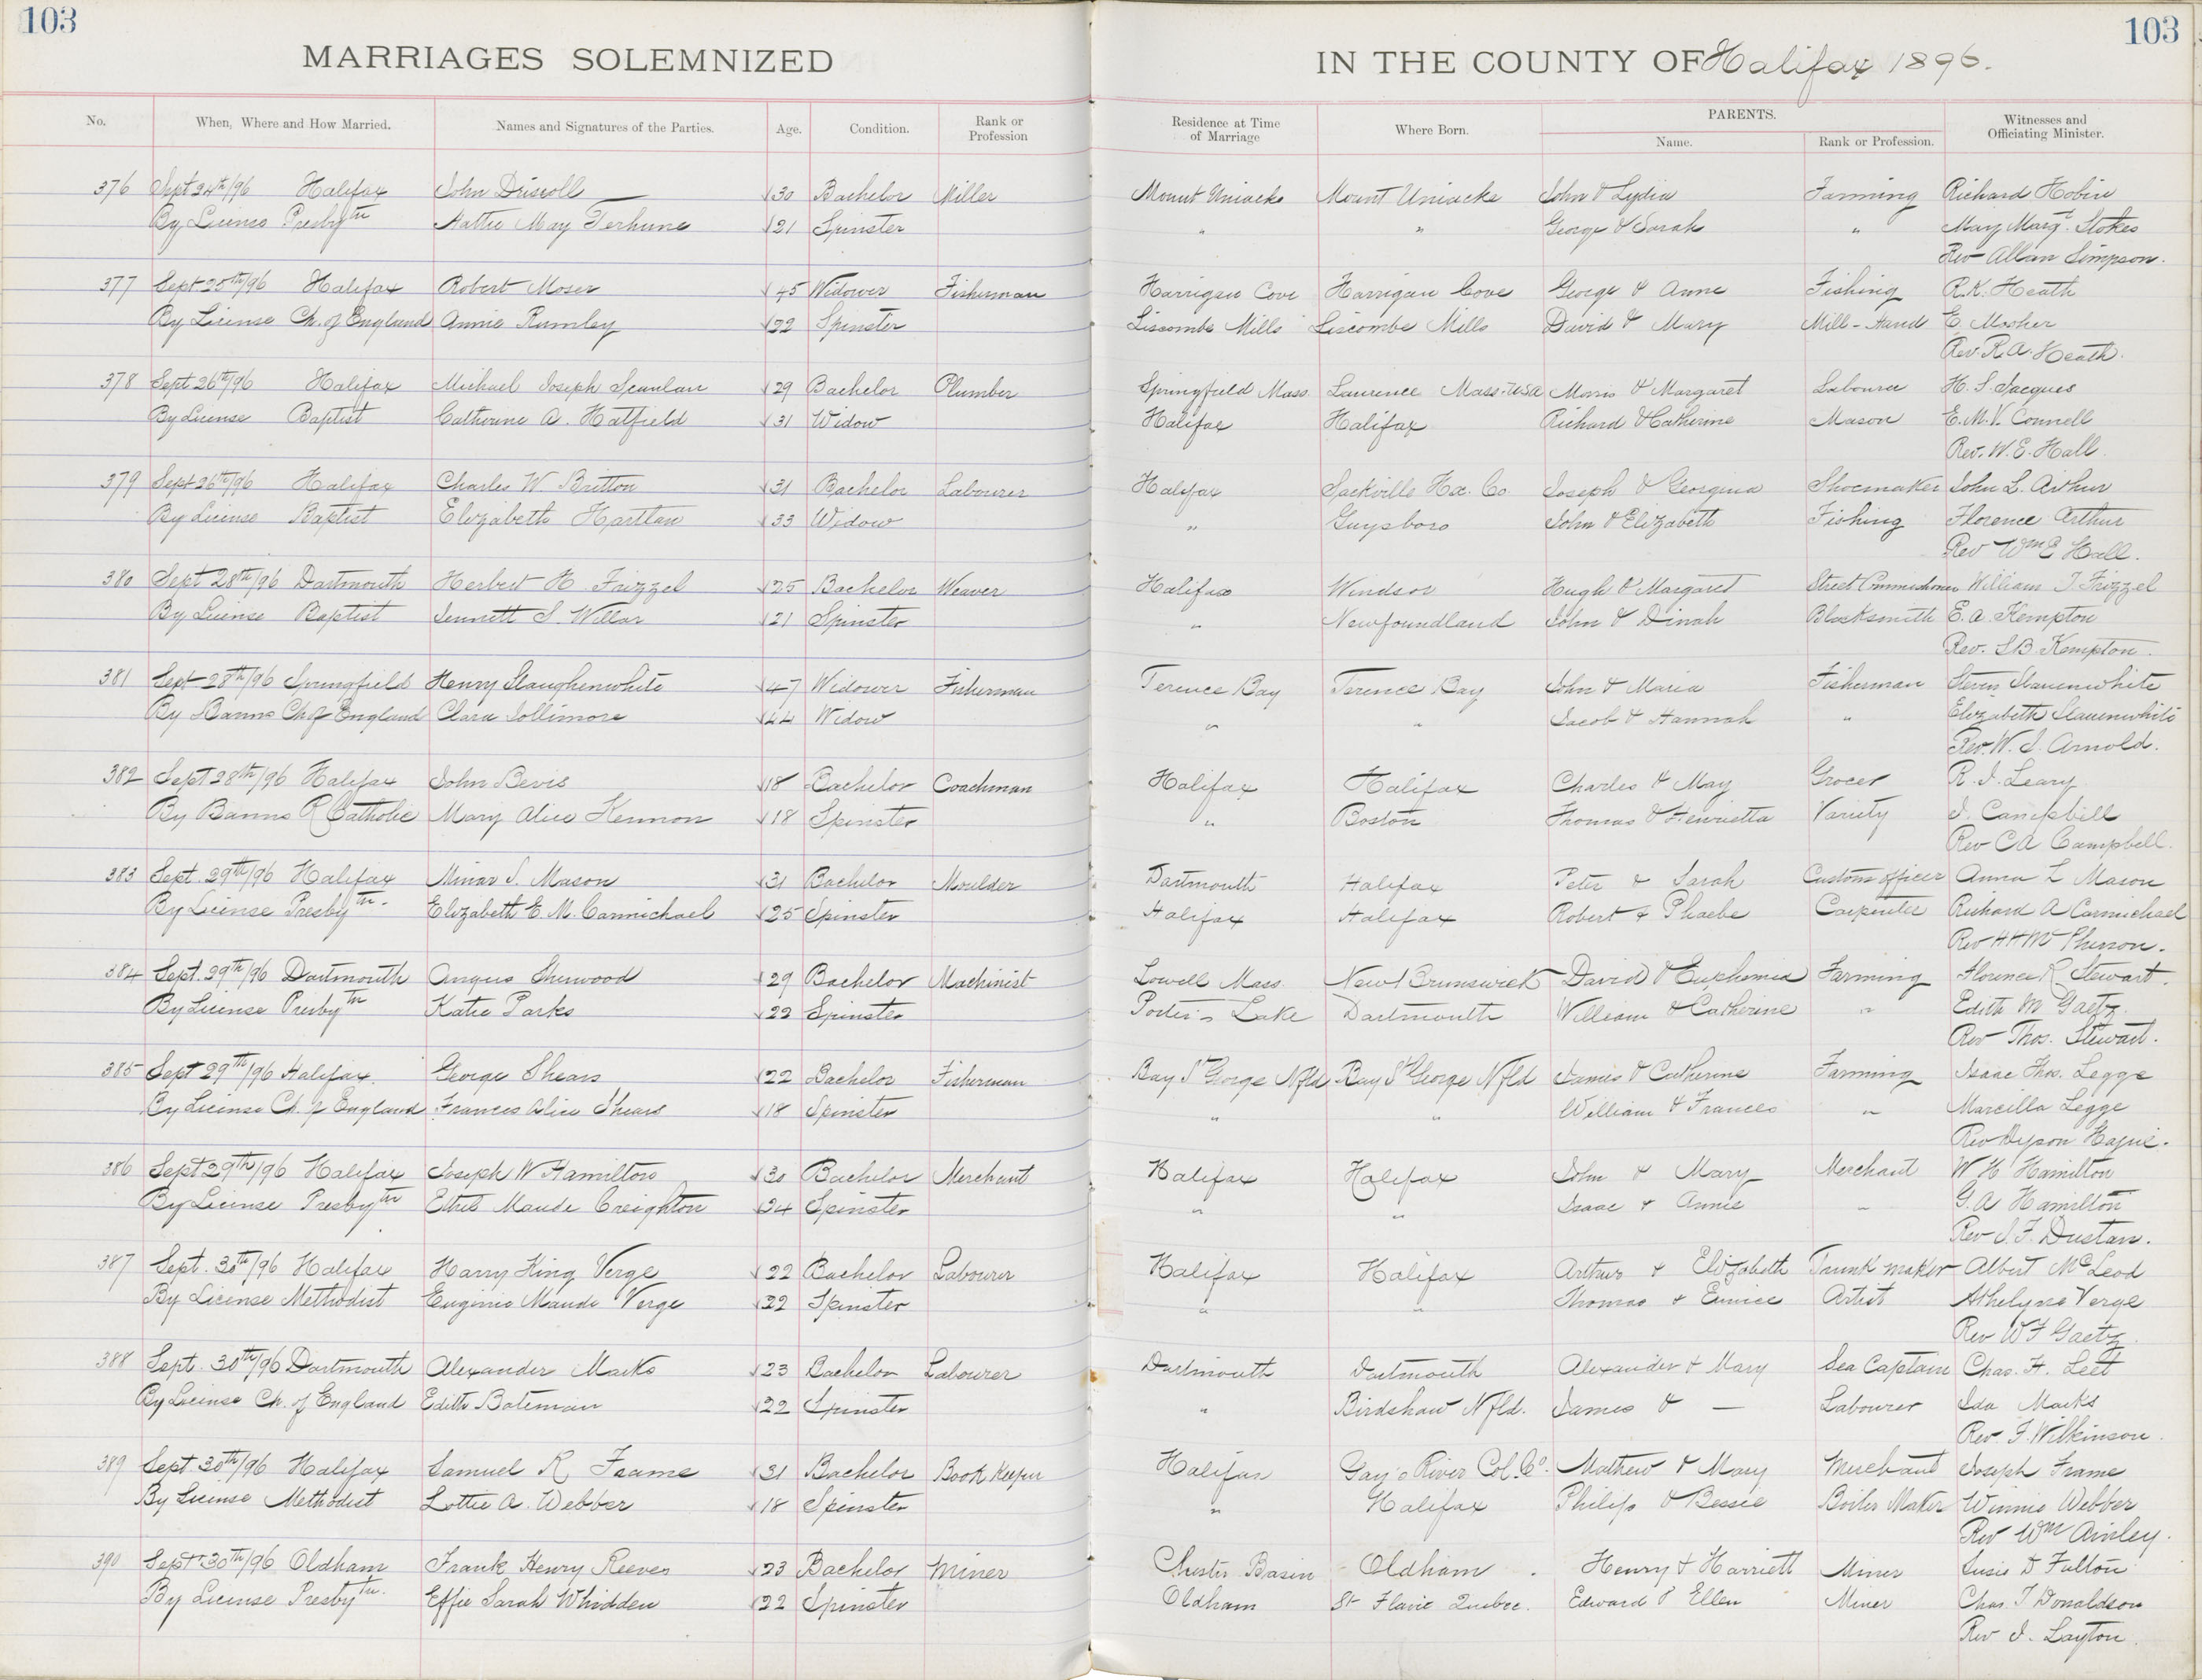 103
103
MARRIAGES SOLEMNIZED IN THE COUNTY OF Halifax 1896.
No. When, Where and How Married. Names and Signatures of the Parties. Age. Condition. Rank or Profession Residence at Time of Marriage Where Born. PARENTS. Name. Rank or Profession. Witnesses and Officiating Minister.
376 Sept 24th/96 Halifax John Driscoll 30 Bachelor Miller Mount Uniacke Mount Uniacke John & Lydia Farming Richard Hobin
By License Presbytn Hattie May Terhune 21 Spinster " " George & Sarah " May Margt. Stokes
Rev Allan Simpson.
377 Sept 25th/96 Halifax Robert Moser 45 Widower Fisherman Harrigan Cove Harrigan Cove George & Anne Fishing R.K. Heath
By License Ch. of England Annie Rumley 22 Spinster Liscombe Mills Liscombe Mills David & Mary Mill-Hand E. Mosher
Rev. R.A. Heath.
378 Sept 26th/96 Halifax Michael Joseph Scanlan 29 Bachelor Plumber Springfield Mass Laurence Mass. USA Maris & Margaret Labourer H. S. Jacques
By License Baptist Catherine A. Hatfield 31 Widow Halifax Halifax Richard & Catherine Mason E.M.V. Connell
Rev. W.E. Hall.
379 Sept 26th/96 Halifax Charles W. Britton 31 Bachelor Labourer Halifax Sackville Hx. Co Joseph & Georgina Shoemaker John L. Arthur
By License Baptist Elizabeth Hartlan 33 Widow " Guysboro John & Elizabeth Fishing Florence Arthur
Rev Wm E Hall.
380 Sept 28th/96 Dartmouth Herbert H. Frizzel 25 Bachelor Weaver Halifax Windsor Hugh & Margaret Street Commissioner William J Frizzel
By License Baptist Jennett S. Willar 21 Spinster " Newfoundland John & Dinah Blacksmith E.A. Kempton
Rev. S.B. Kempton.
381 Sept 28th/96 Springfield Henry Slaughenwhite 47 Widower Fisherman Terence Bay Terence Bay John & Maria Fisherman Slauenwhite
By Banns Ch of England Clara Jollimore 44 Widow " " Jacob & Hannah " Elizabeth Slauenwhite
Rev. W. J. Arnold.
382 Sept 28th/96 Halifax John Bevis 18 Bachelor Coachman Halifax Halifax Charles & May Grocer R. J. Leary
By Banns R Catholic Mary Alice Kennon 18 Spinster " Boston Thomas & Henrietta Variety J. Campbell
Rev C A Campbell.
383 Sept. 29th/96 Halifax Minar S. Mason 31 Bachelor Moulder Dartmouth Halifax Peter & Sarah Custom officer Anna L Mason
By License Presbytn. Elizabeth E. M. Carmichael 25 Spinster Halifax Halifax Robert & Phoebe Carpenter Richard A Carmichael
Rev H H McPherson.
384 Sept. 29th/96 Dartmouth Angus Sherwood 29 Bachelor Machinist Lowell Mass New Brunswick David & Euphemia Farming Florence R Stewart.
By License Presbytn Katie Parks 22 Spinster Porter's Lake Dartmouth William & Catherine " Edith M Gaetz
Rev Thos. Stewart.
385 Sept 29th/96 Halifax. George Shears 22 Bachelor Fisherman Bay St George Nfld Bay St George Nfld James & Catherine Farming Isaac Thos. Legge
By License Ch. of England Frances Alice Shears 18 Spinster " " William & Frances " Marcilla Legge
Rev Dyson Hague.
386 Sept 29th/96 Halifax Joseph W Hamilton 30 Bachelor Merchant Halifax Halifax John & Mary Merchant W H Hamilton
By License Presbytn Ethel Maude Creighton 24 Spinster " " Isaac & Annie " G. A Hamilton
Rev J. F. Dustan.
387 Sept. 30th/96 Halifax Harry King Verge 22 Bachelor Labourer Halifax Halifax Arthur & Elizabeth Trunk maker Albert McLeod
By License Methodist Euginie Maude Verge 22 Spinster " " Thomas & Eunice Artist Athelyne Verge
Rev W F Gaetz.
388 Sept. 30th/96 Dartmouth Alexander Marks 23 Bachelor Labourer Dartmouth Dartmouth Alexander & Mary Sea Captain Chas. H. Leet
By License Ch. of England Edith Bateman 22 Spinster " Birdshaw Nfld. James & — Labourer Ida Marks
Rev. F. Wilkinson.
389 Sept 30th/96 Halifax Samuel R Frame 31 Bachelor Book Keeper Halifax Gay's River Col. Co. Mathew & Mary Merchant Joseph Frame
By License Methodist Lottie A. Webber 18 Spinster " Halifax Philip & Bessie Boiler Maker Winnie Webber
Rev Wm Ainley.
390 Sept 30th/96 Oldham Frank Henry Reeves 23 Bachelor Miner Chester Basin Oldham. Henry & Harriett Miner Susie D Fulton
By License Presbytn. Effie Sarah Whidden 22 Spinster Oldham St Flavie Quebec. Edward & Ellen Miner Chas. T Donaldson
Rev J. Layton.